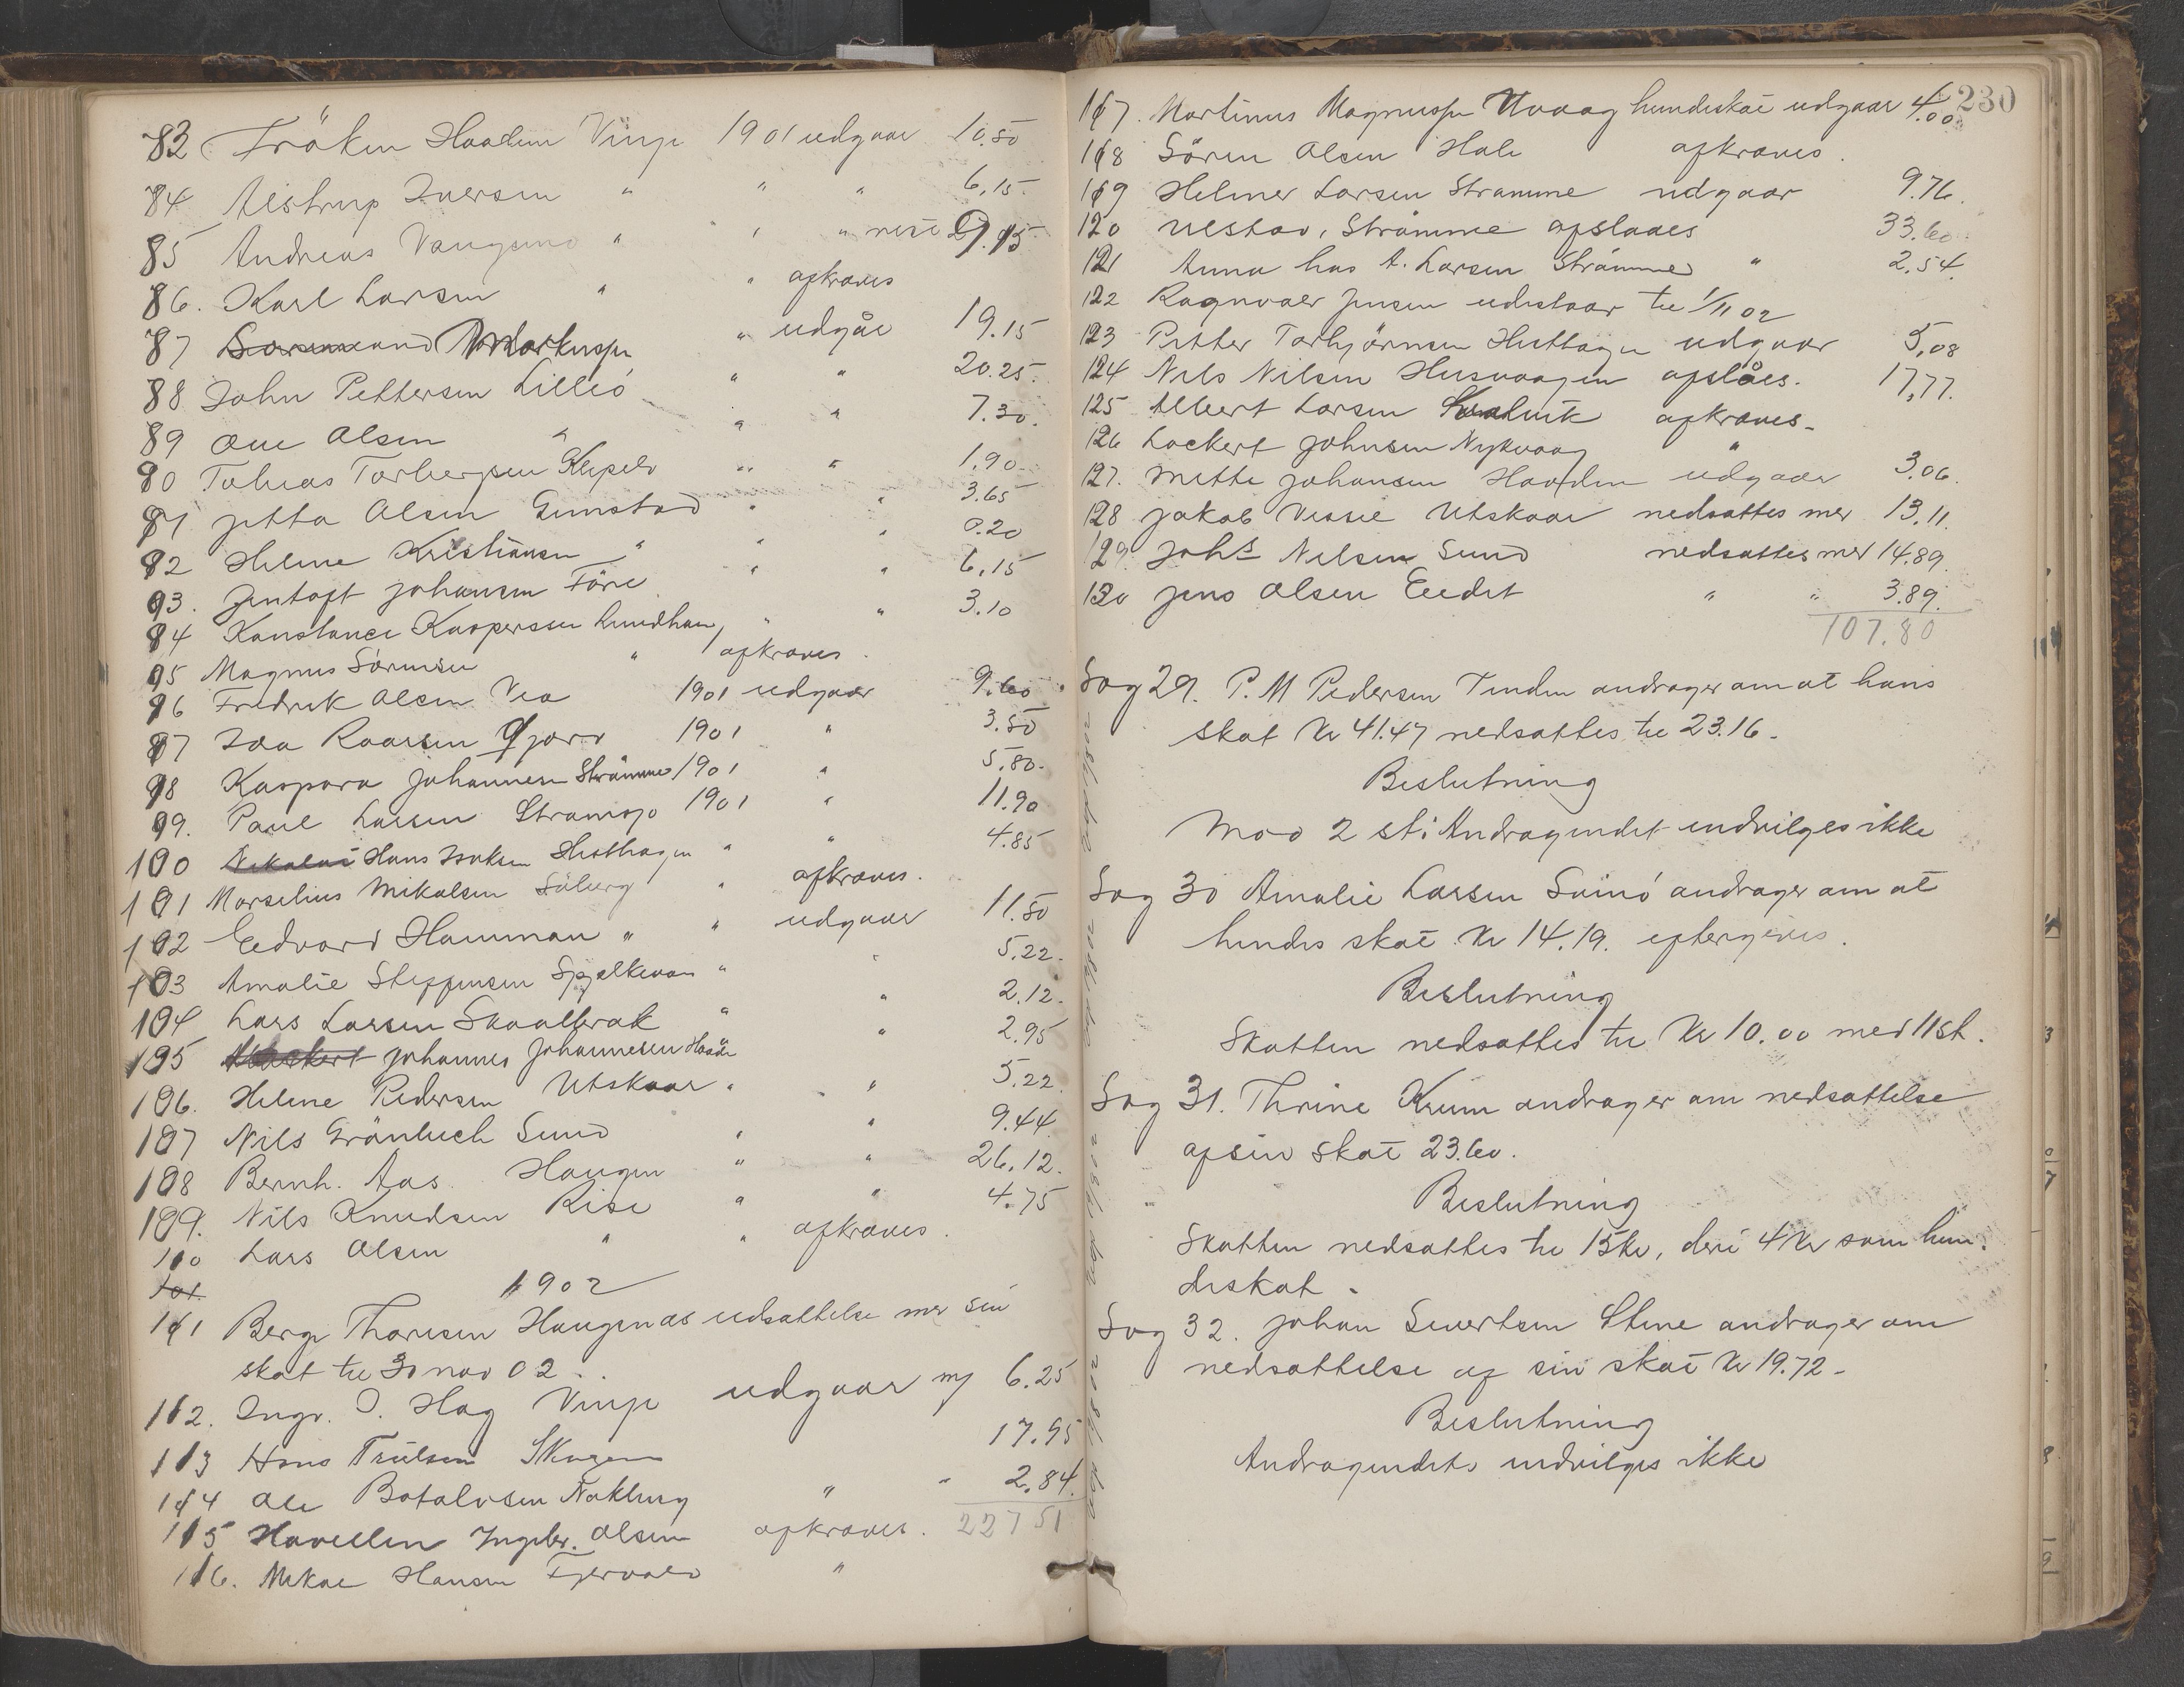 83 Fröken Haadem Vinje 1901 udgaar 10.50
84 Alstrup Iversen " " " 6.15
85 Andreas Vangsund " " " rest 9.95
86. Karl Larsen " " afkræves
87 Markussen " udgår 19.15
88 John Pettersen Lilleö " " 20.25
89 Ane Olsen " " " 7.30
90 Tobias Torbergsen " " 1.90
91 Jetta Olsen Guustad " " 3.65
92 Helene Kristiansen " " " 0.20
93. Jentoft Johansen Före " " 6.15
94 Konstance Kaspersen " " 3.10
95 Magnus Sörensen " afkræves.
96 Fredrik Olsen Vea 1901 udgaar 9.60
97 Ida Roarsen 1901 " 3.50
98 Kaspara Johannesen Strömme 1901 " 5.80
99. Paul Larsen 1901 " 11.90
100 Nikolai Hans Isaksen Hesthagen " " 4.85
101 Marselius Mikalsen Söberg " afkræves.
102 Edvard Hamman " " udgaar 11.50
103 Amalie Steffensen " " 5.22
104 Lars Larsen Skaalbrak " " 2.12
105 Johannes Johannesen " 2.95
106. Helene Pedersen Utskaar " " 5.22
107 Nils Grönbech Sund " " 9.44
108 Bernh. Aas Haugen " " 26.12
109. Nils Knudsen Rise " " 4.75
110 Lars Olsen " " afkræves.
101. 1902
111 Berge Thoresen Haugenæs udsættelse med sin
skat til 30 nov 02.
112. Ingv. I. Hag Vinje udgaar m/ 6.25
113 Hans Trulsen Skagen 17.95
114 Ole Botolvsen Nakling " " 2.84
115 Ingebr. Olsen afkræves. 227 51
116. Hansen Fjærvold "
230
117. Martinus Magnussen Uvaag hundeskat udgaar 4.00
118 Sören Olsen Hals afkræves.
119 Helmer Larsen Strømme udgaar 9.76.
120 Strømme afslaaes 33.60
121 Anna has A. Larsen Strømme " 2.54
122 Ragnvald Jensen udestaar til 1/11 02
123 Petter Torbjörnsen Hesthagen udgaar 5,08
124 Nils Nilsen Husvaagen afslåes. 17,77.
125 Albert Larsen afkræves.
126 Lockert Johnsen Nykvaag "
127. Mette Johansen Haaden udgaar 3.06.
128 Jakob Utskaar nedsættes med 13.11.
129. Johs Nilsen Sund nedsættes med 14.89.
130 Jens Olsen Eidet " " 3.89.
107.80
Sag 29. P. M Pedersen Tinden andrager om at hans
skat Kr 41.47 nedsættes til 23.16.
Beslutning
Mod 2 st: Andragendet indvilges ikke
Sag 30 Amalie Larsen Svinö andrager om at
hendes skat Kr 14.19. eftergives.
Beslutning
Skatten nedsættes til Kr 10.00 med 11 st.
Sag 31. Thrine Krum andrager om nedsættelse
af sin skat 23.60.
Beslutning
Skatten nedsættes til 15 kr, deri 4 Kr som hun-
deskat.
Sag 32. Johan Sivertsen Stene andrager om
nedsættelse af sin skat Kr 19.72.
Beslutning
Andragendets indvilges ikke